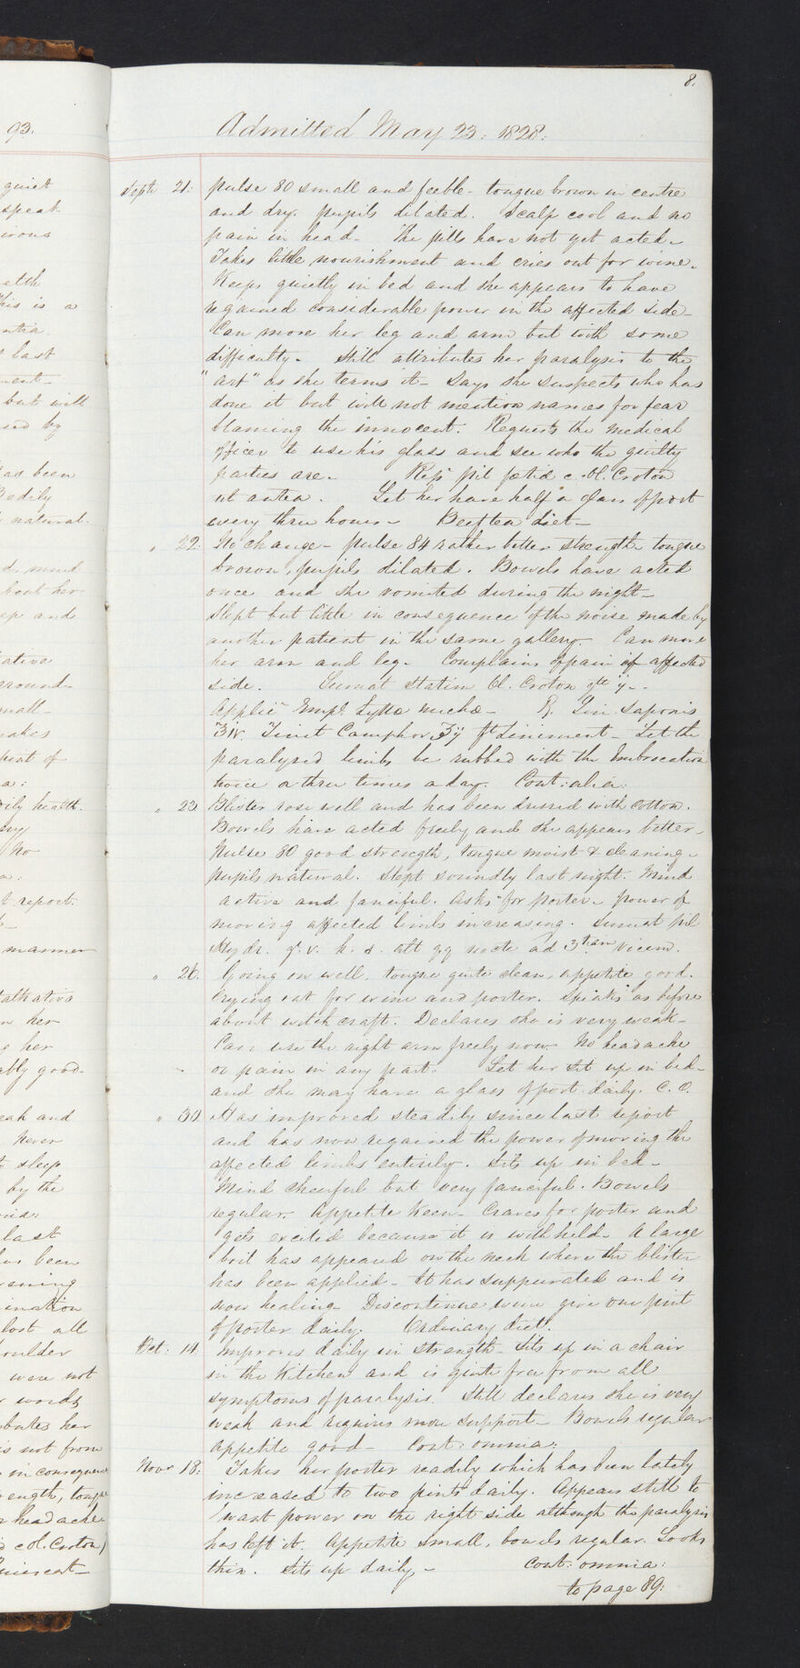 93.
8.
Admitted May 23: 1828.
quiet
speak
this is a
last
but will
by
has been
bodily
natural
mind
about her
and
ground
small
takes
pint of
bodily health.
No
report.
manner
talkative
her
her
good
weak and
Never
to sleep
by the
last
has been
evening
lost all
shoulder
were not
words
her
is not from
in consequence
strength, tongue
headache
c ol. Croton
Septr 21. pulse 80 small and feeble - tongue brown in centre
and dry. pupils dilated. Scalp cool and no
pain in head - The pills have not yet acted -
Takes little nourishment and cries out for wine.
Keeps quietly in bed and she appears to have
regained considerable power in the affected side -
Can move her leg and arm but with some
difficulty - Still attributes her paralysis to the
"art" as she terms it - Says she suspects who has
done it but will not mention names for fear
blaming the innocent. Requests the medical
officer to use his glass and see who the guilty
parties are. Repr pil fœtid c. Ol. Croton
ut antea. Let her have half a glass of port
every three hours - Beef tea diet -
" 22. No change - pulse 84 rather better strength tongue
brown, pupils dilated. Bowels have acted
once and she vomited during the night -
Slept but little in consequence of the noise made by
another patient in the same gallery. Can move
her arm and leg. Complains of pain of affected
side. Sumat statim Ol. Croton gtt ij -
Applicr Empl. Lyttæ nuchæ - R. Lin Saponis
ʒiv. Tinct Camphor ʒij ft Liniment - Let the
paralysed limbs be rubbed with the Embrocation
twice or three times a day. Cont: alia.
" 23 Blister rose well and has been dressed with cotton.
Bowels have acted freely and she appears better -
Pulse 80 good strength, tongue moist & cleaning -
pupils natural. Slept soundly last night. Mind
active and fanciful. Asks for porter - power of
moving affected limbs increasing. Sumat pil
Hydr. gr. v. h. s. alt nocte ad 3tiam vicem.
" 26. Going on well, tongue quite clean, appetite good.
Crying out for wine and porter. Speaks as before
about witchcraft. Declares she is very weak -
Can use the right arm freely now. No headache
or pain in any part. Let her sit up in bed -
and she may have a glass of port daily. C. O.
" 30 Has improved steadily since last report
and has now regained the power of moving the
affected limbs entirely. Sits up in bed -
Mind cheerful but very fanciful. Bowels
regular. Appetite keen - Craves for porter and
gets excited because it is withheld - A large
boil has appeared on the neck where the blister
has been applied - It has suppurated and is
now healing. Discontinue wine give one pint
of porter daily. Ordinary diet.
Oct: 14. Improves daily in strength - Sits up in a chair
in the Kitchen and is quite free from all
symptoms of paralysis. Still declares she is very
weak and requires more support - Bowels regular
appetite good - Cont: omnia:
Novr 18: Takes her porter readily which has been lately
increased to two pints daily. Appears still to
want power on the right side although the paralysis
has left it. Appetite small, bowels regular. Looks
thin. Sits up daily - Cont: omnia:
to page 89: